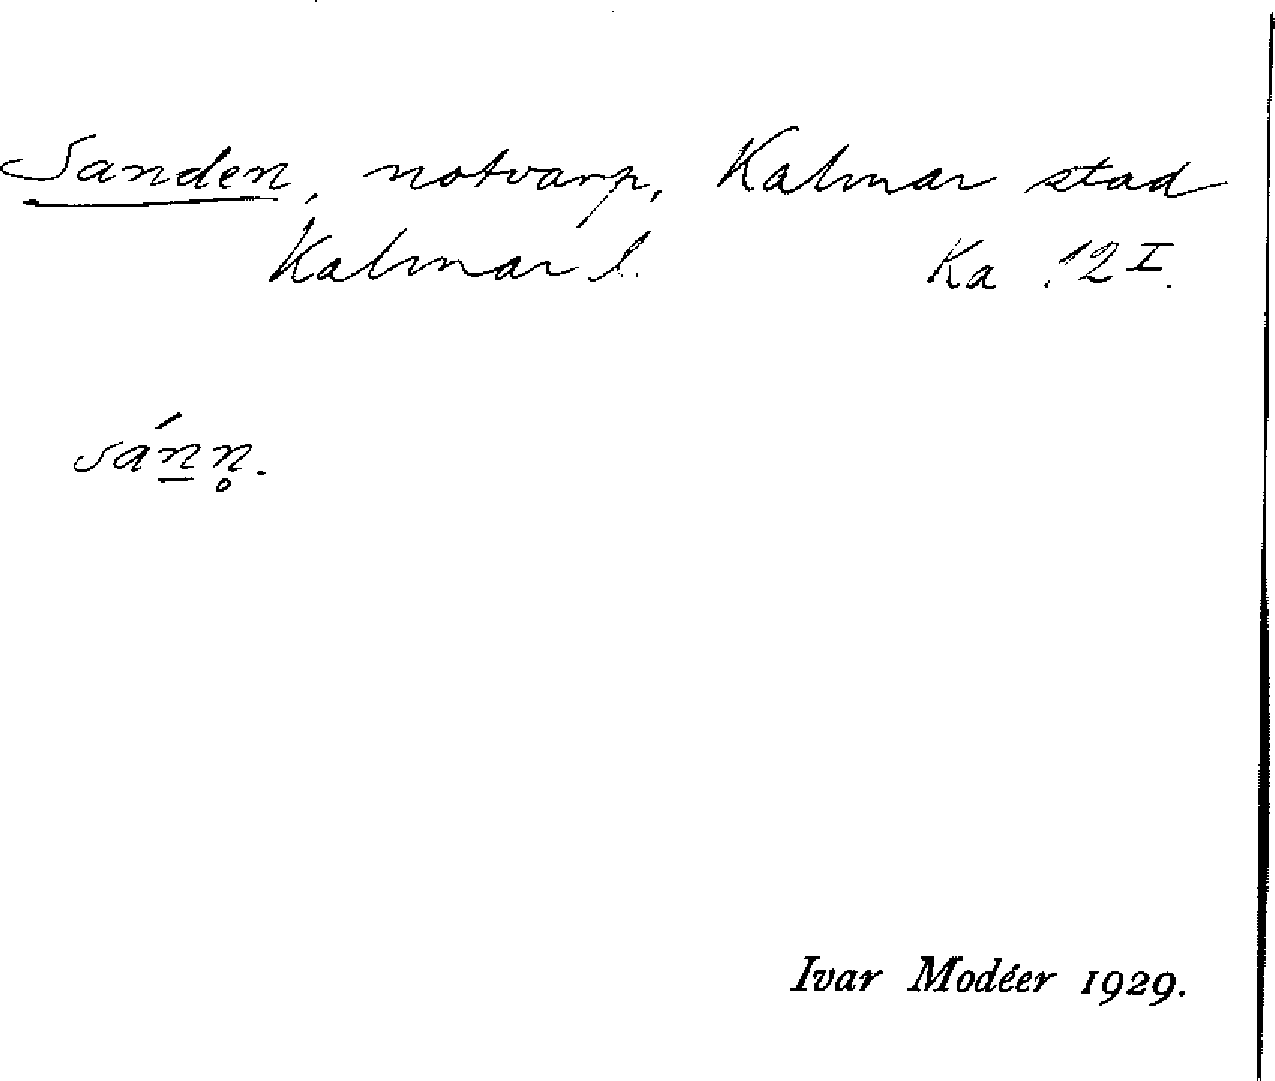 Sanden, notvarp, Kalmar stad
Kalmar l. Ka .12 I.
sán̲n̥.
Ivar Modéer 1929.